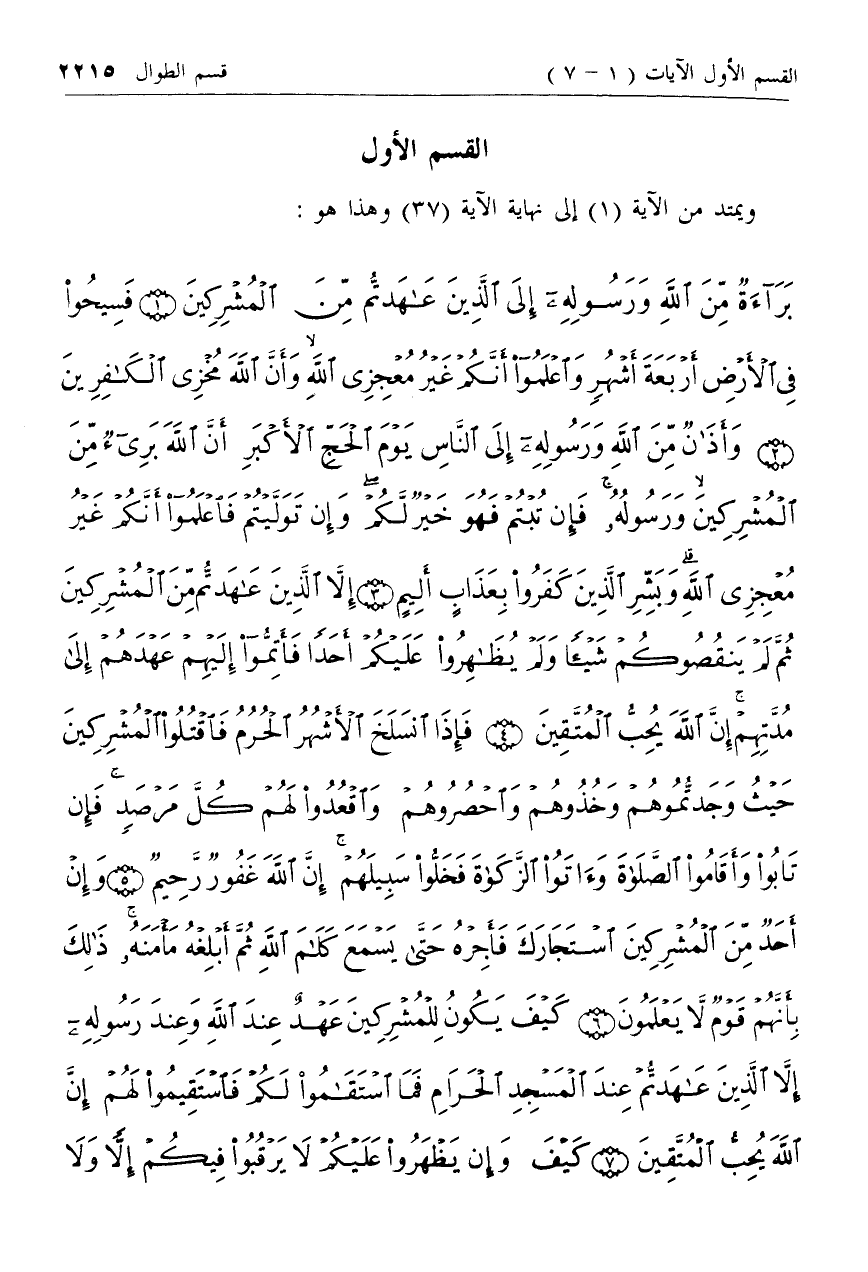 القسم الأول الآيات ( ١ - ٧ ) قسم الطوال ٢٢١٥
القسم الأول
ويمتد من الآية (١) إلى نهاية الآية (٣٧) وهذا هو :
بَرَآءَةٌ مِّنَ ٱللَّهِ وَرَسُولِهِۦٓ إِلَى ٱلَّذِينَ عَٰهَدتُّم مِّنَ ٱلْمُشْرِكِينَ ﴿١﴾ فَسِيحُوا۟
فِى ٱلْأَرْضِ أَرْبَعَةَ أَشْهُرٍ وَٱعْلَمُوٓا۟ أَنَّكُمْ غَيْرُ مُعْجِزِى ٱللَّهِ ۙ وَأَنَّ ٱللَّهَ مُخْزِى ٱلْكَٰفِرِينَ
﴿٢﴾ وَأَذَٰنٌ مِّنَ ٱللَّهِ وَرَسُولِهِۦٓ إِلَى ٱلنَّاسِ يَوْمَ ٱلْحَجِّ ٱلْأَكْبَرِ أَنَّ ٱللَّهَ بَرِىٓءٌ مِّنَ
ٱلْمُشْرِكِينَ ۙ وَرَسُولُهُۥ ۚ فَإِن تُبْتُمْ فَهُوَ خَيْرٌ لَّكُمْ ۖ وَإِن تَوَلَّيْتُمْ فَٱعْلَمُوٓا۟ أَنَّكُمْ غَيْرُ
مُعْجِزِى ٱللَّهِ ۗ وَبَشِّرِ ٱلَّذِينَ كَفَرُوا۟ بِعَذَابٍ أَلِيمٍ ﴿٣﴾ إِلَّا ٱلَّذِينَ عَٰهَدتُّم مِّنَ ٱلْمُشْرِكِينَ
ثُمَّ لَمْ يَنقُصُوكُمْ شَيْـًٔا وَلَمْ يُظَٰهِرُوا۟ عَلَيْكُمْ أَحَدًا فَأَتِمُّوٓا۟ إِلَيْهِمْ عَهْدَهُمْ إِلَىٰ
مُدَّتِهِمْ ۚ إِنَّ ٱللَّهَ يُحِبُّ ٱلْمُتَّقِينَ ﴿٤﴾ فَإِذَا ٱنسَلَخَ ٱلْأَشْهُرُ ٱلْحُرُمُ فَٱقْتُلُوا۟ ٱلْمُشْرِكِينَ
حَيْثُ وَجَدتُّمُوهُمْ وَخُذُوهُمْ وَٱحْصُرُوهُمْ وَٱقْعُدُوا۟ لَهُمْ كُلَّ مَرْصَدٍ ۚ فَإِن
تَابُوا۟ وَأَقَامُوا۟ ٱلصَّلَوٰةَ وَءَاتَوُا۟ ٱلزَّكَوٰةَ فَخَلُّوا۟ سَبِيلَهُمْ ۚ إِنَّ ٱللَّهَ غَفُورٌ رَّحِيمٌ ﴿٥﴾ وَإِنْ
أَحَدٌ مِّنَ ٱلْمُشْرِكِينَ ٱسْتَجَارَكَ فَأَجِرْهُ حَتَّىٰ يَسْمَعَ كَلَٰمَ ٱللَّهِ ثُمَّ أَبْلِغْهُ مَأْمَنَهُۥ ۚ ذَٰلِكَ
بِأَنَّهُمْ قَوْمٌ لَّا يَعْلَمُونَ ﴿٦﴾ كَيْفَ يَكُونُ لِلْمُشْرِكِينَ عَهْدٌ عِندَ ٱللَّهِ وَعِندَ رَسُولِهِۦٓ
إِلَّا ٱلَّذِينَ عَٰهَدتُّمْ عِندَ ٱلْمَسْجِدِ ٱلْحَرَامِ فَمَا ٱسْتَقَٰمُوا۟ لَكُمْ فَٱسْتَقِيمُوا۟ لَهُمْ إِنَّ
ٱللَّهَ يُحِبُّ ٱلْمُتَّقِينَ ﴿٧﴾ كَيْفَ وَإِن يَظْهَرُوا۟ عَلَيْكُمْ لَا يَرْقُبُوا۟ فِيكُمْ إِلًّا وَلَا